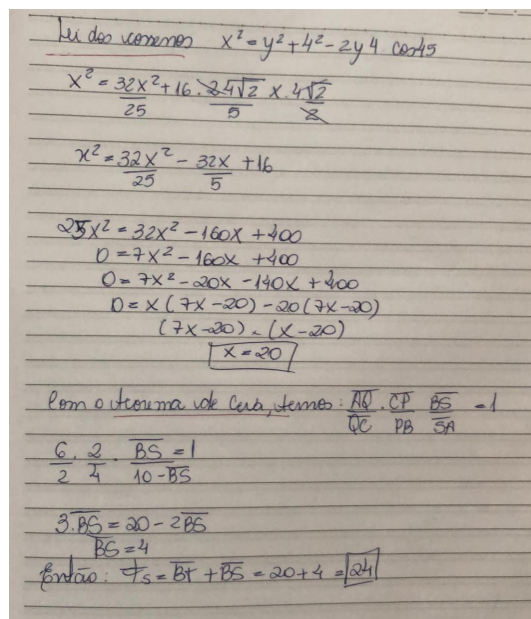 Lei dos cossenos x² = y² + 4² - 2y4 cos45
x² = 32x²/25 + 16 · 24√2/5 x · 4√2/2
x² = 32x²/25 - 32x/5 + 16
25x² = 32x² - 160x + 400
0 = 7x² - 160x + 400
0 = 7x² - 20x - 140x + 400
0 = x(7x-20) - 20(7x-20)
(7x-20) · (x-20)
x = 20
Com o teorema de Ceva, temos: AQ/QC · CP/PB BS/SA = 1
6/2 · 2/4 · BS/10-BS = 1
3·BS = 20 - 2BS
BS = 4
Então: TS = BT + BS = 20 + 4 = 24